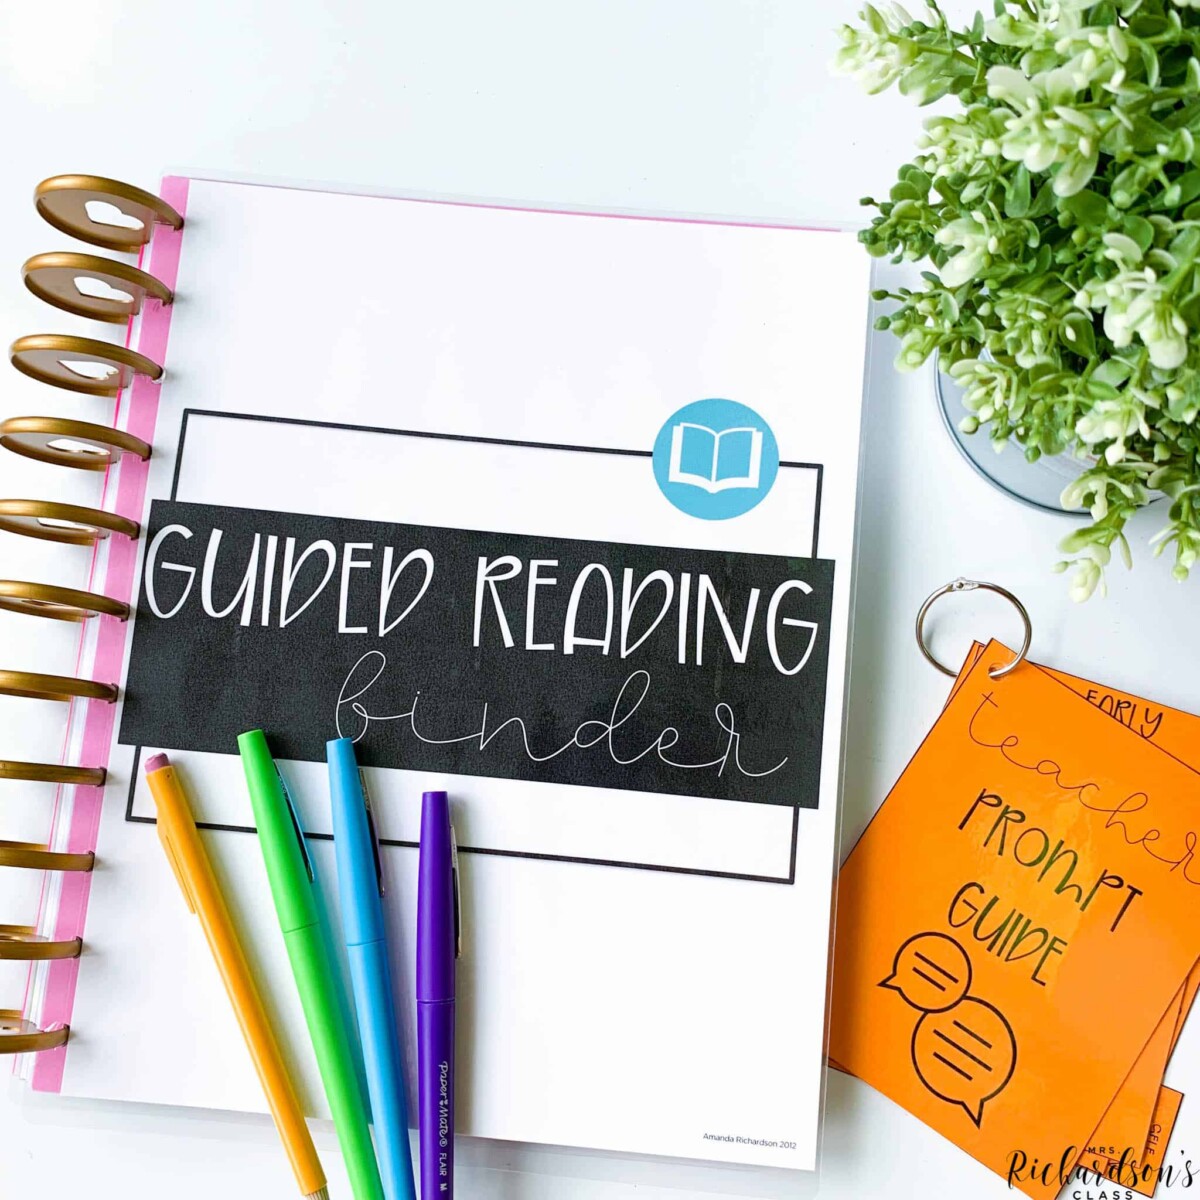 GUIDED READING
binder
Amanda Richardson 2012
Paper Mate® FLAIR M
EARLY
teacher
PROMPT
GUIDE
SELF
MRS.
Richardson's
CLASS